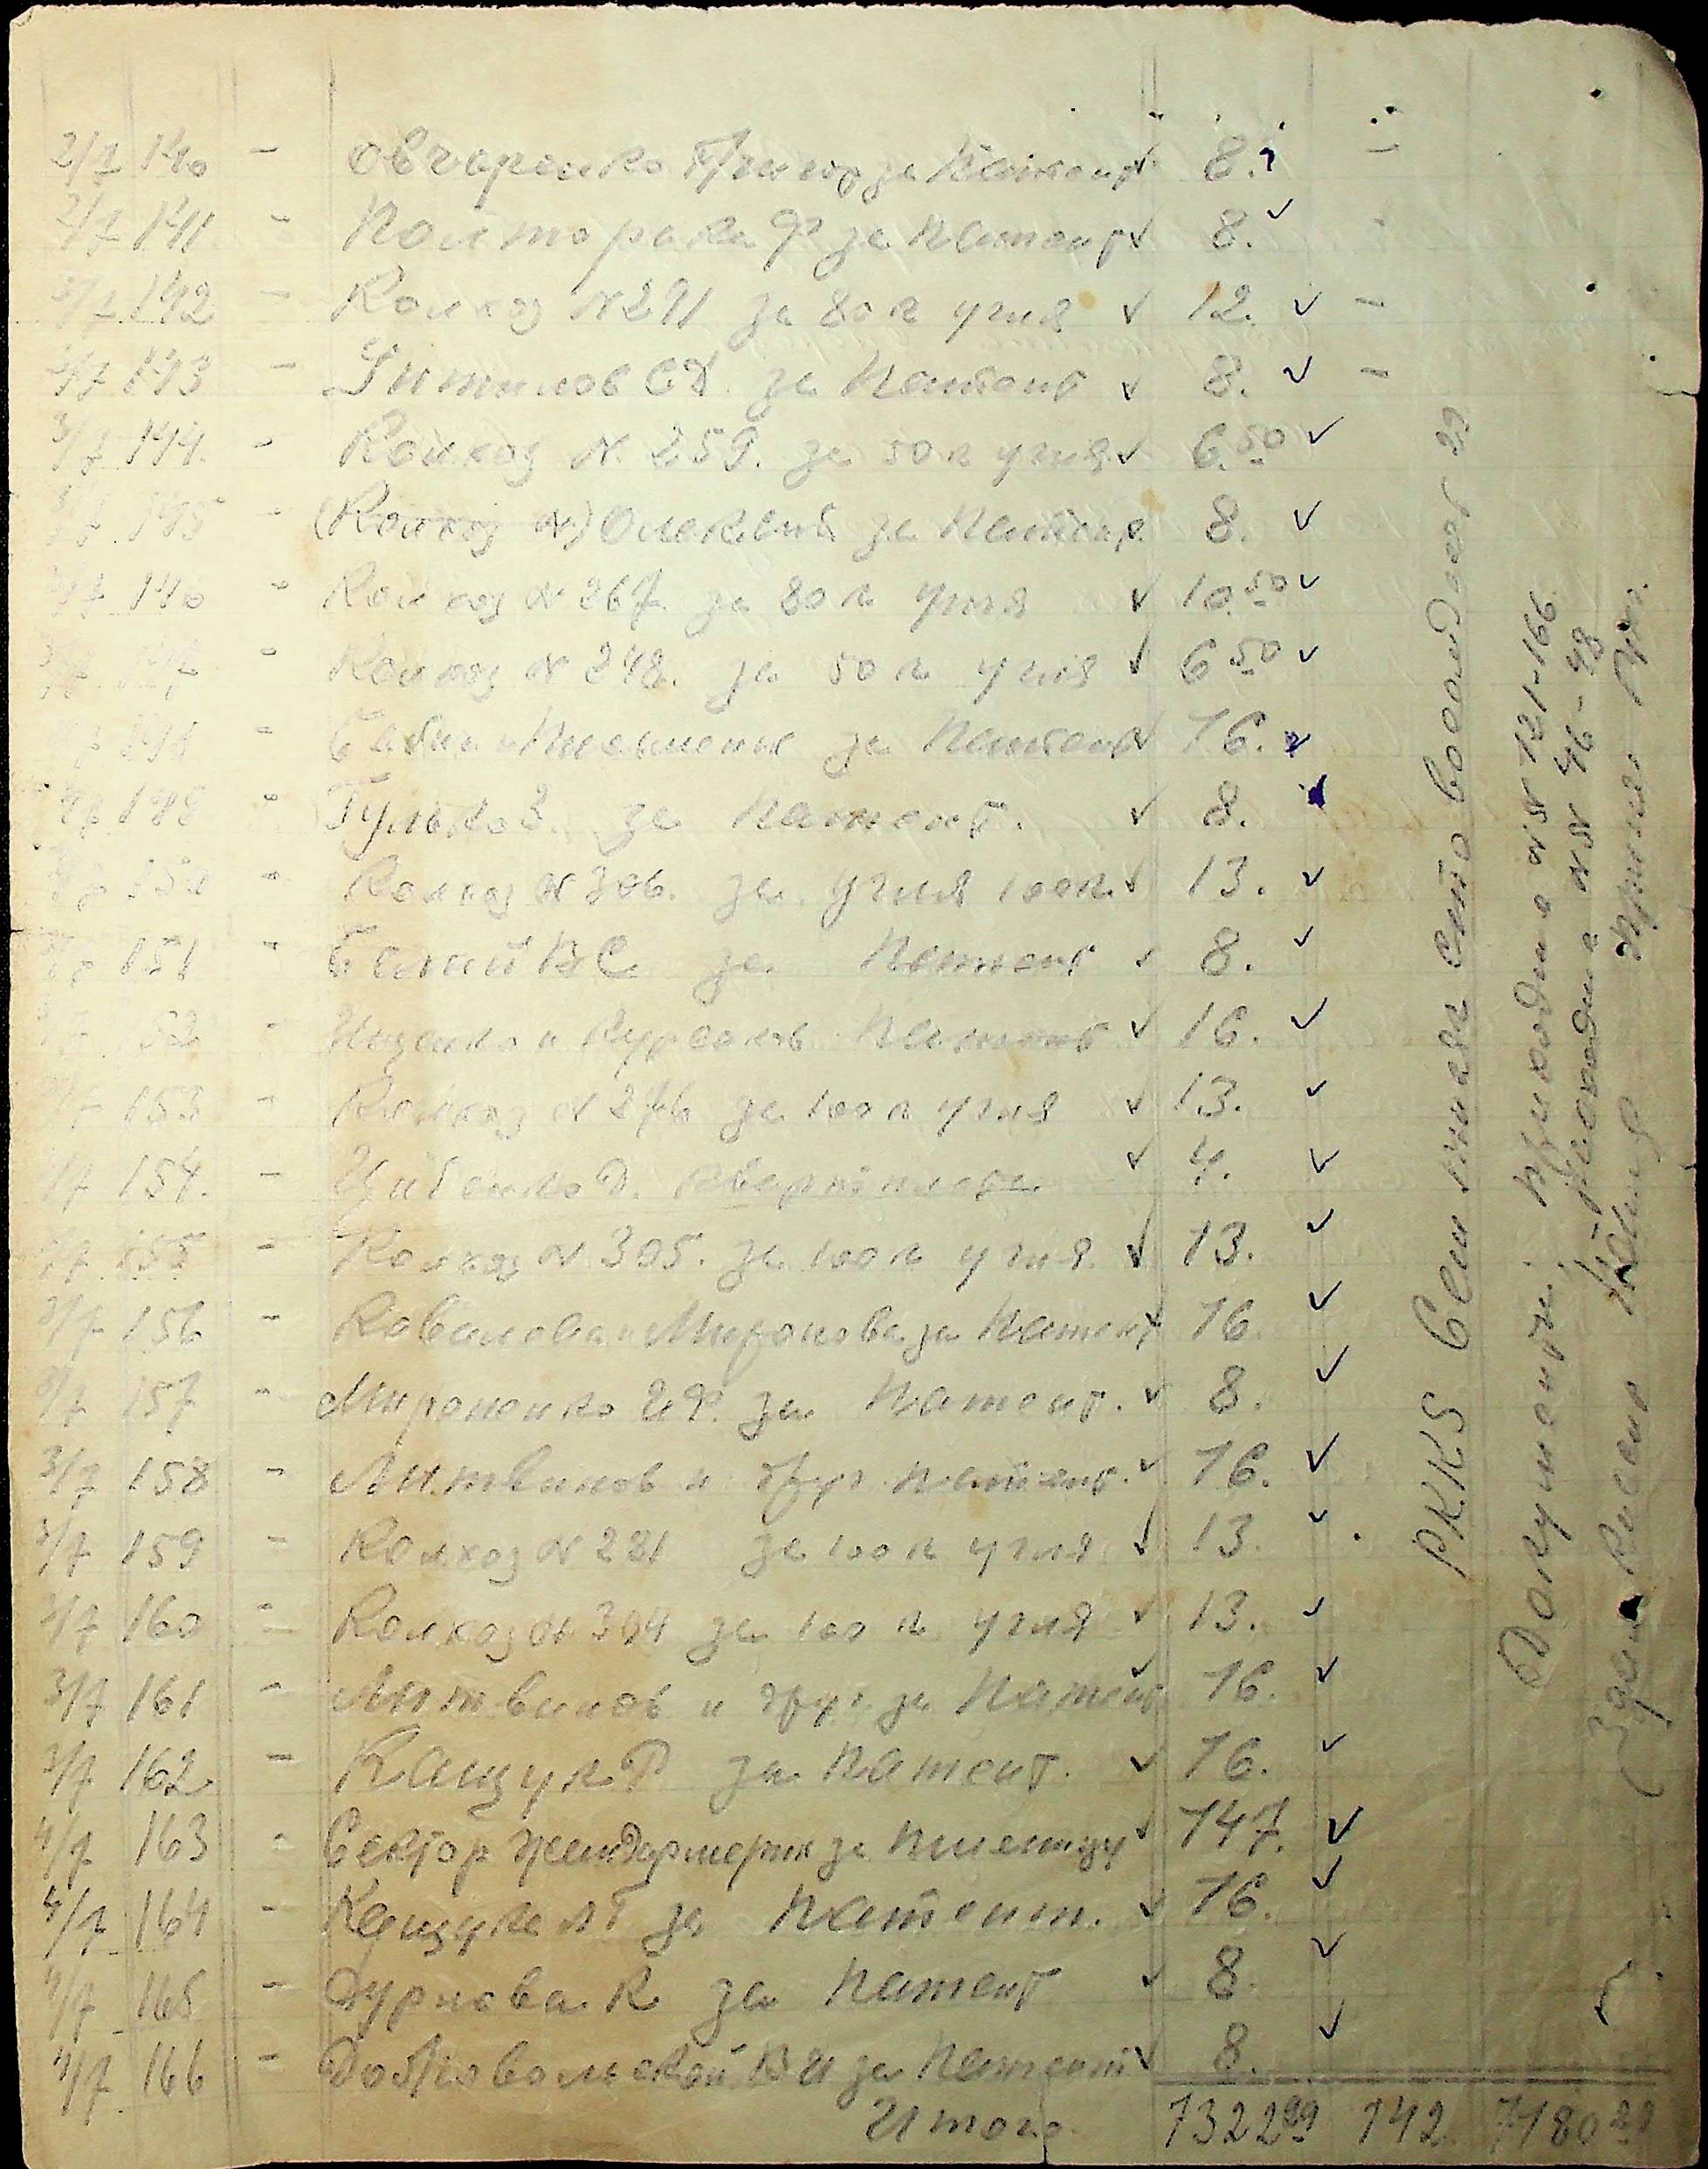 2/7 140 - Овчаренко Григор за Патент 8.
2/7 141 - Полторака Ф за Патент 8.
3/7 142 - Колхоз N 291 за 80 к угля 12. -
3/7 143 - СД. за Патент 8. -
3/7 144. - Колхоз N. 259. за 50 к угля 6.50
145 - (Колхоз N) за Патент 8.
3/7 146 - Колхоз N 267 за 80 к угля 10.50
3/7 147 - Колхоз N 248. за 50 к угля 6 50
- и за Патент 16.
149 - Гулько З. за Патент. 8.
150 - Колхоз N 306. за угля 100 к. 13.
151 - Белий В С за Патент 8.
152 - Ищенко и Патент 16.
153 - Колхоз N 276 за 100 к угля 13.
154. - Цибенко Д. 4.
155 - Колхоз N 305. за 100 к угля. 13.
3/7 156 - Ковалова и Миронова за Патент 16
3/7 157 - Мироненко И Ф. за Патент. 8.
3/7 158 - Литвинов и друг. патент. 16.
3/7 159 - Колхоз N 221 за 100 к угля 13.
3/7 160 - Колхоз N 304 за 100 к угля 13.
3/7 161 - Литвинов и друг. за Патент 16.
3/7 162 - Кащук Р за Патент. 16.
4/7 163 - Сектор жандармерик за пшеницу 147.
4/7 164 - Кащука за Патент. 16.
4/7 165 - Дурнова К за Патент 8.
4/7 166 - Добровольской В И за Патент 8.
Итого 1322 29 142 1180 29
РККS Сем сто восемдесят 29
Документи: приходни с NN 121-166
расходни с NN 46-48
Здал Кассир Принял